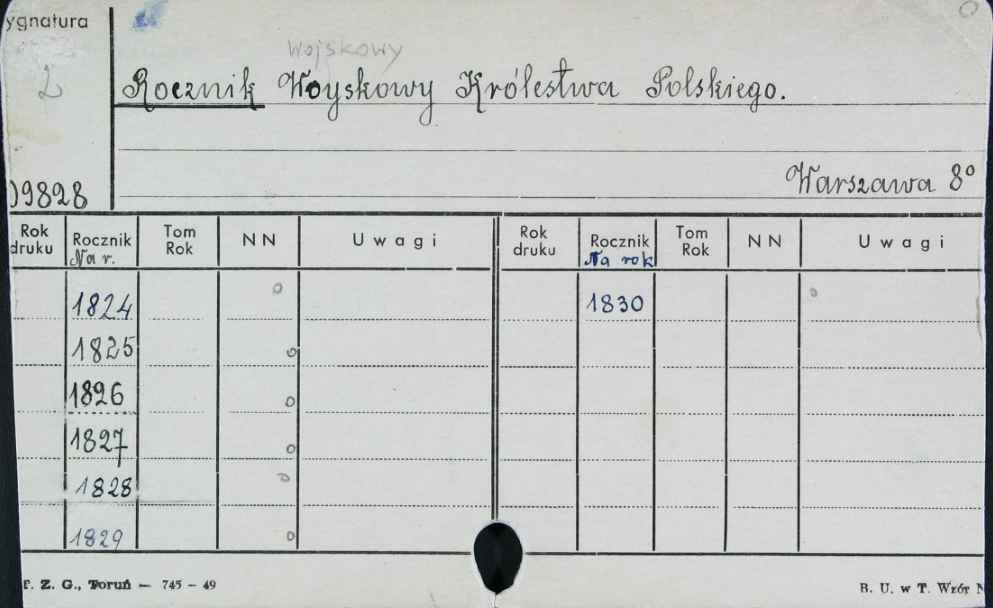 ygnatura
Wojskowy
2
Rocznik Woyskowy Królestwa Polskiego.
Warszawa 8°
09828
Rok druku Rocznik Na r. Tom Rok NN Uwagi Rok druku Rocznik Na rok Tom Rok NN Uwagi
1824 o 1830 o
1825 o
1826 o
1827 o
1828 o
1829 o
T. Z. G., Toruń — 745 - 49
B. U. w T. Wzór N